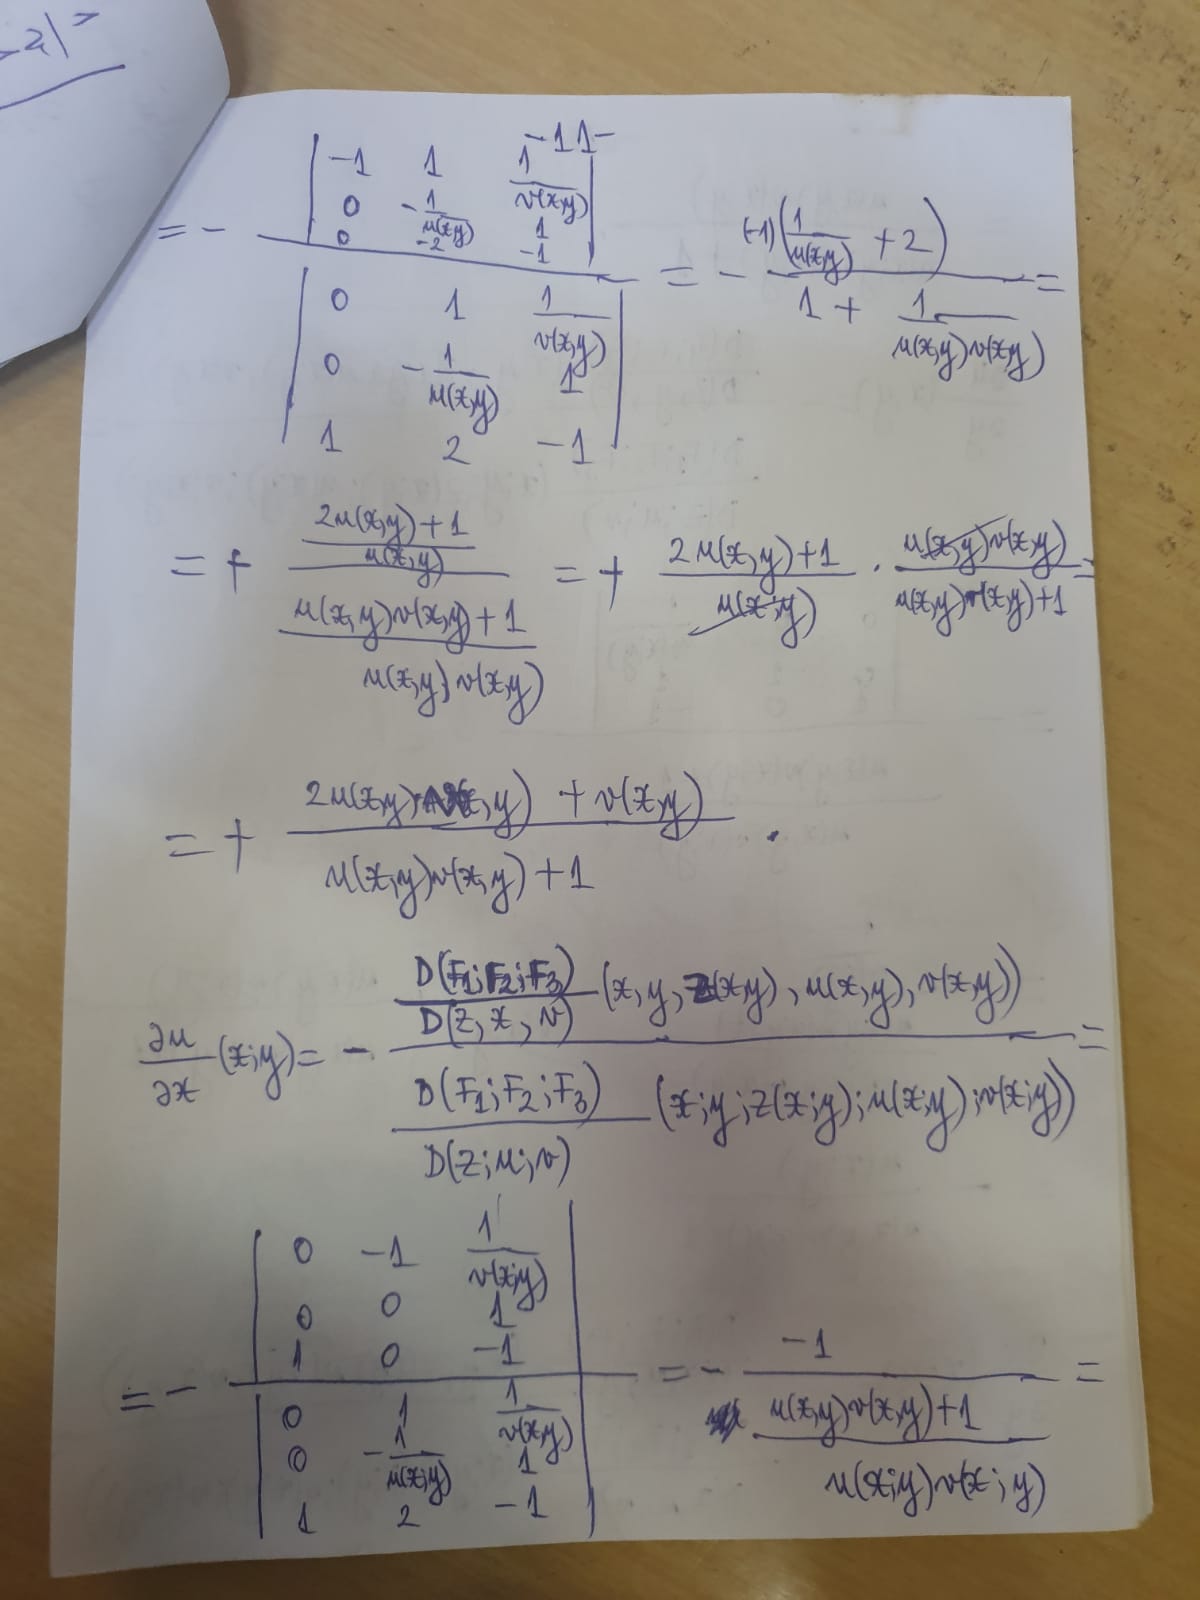 -2|²
-11-
= - | -1 1 1/v(x,y) |
| 0 -1/u(x,y) 1 |
| 0 -2 -1 |
/ | 0 1 1/v(x,y) |
| 0 -1/u(x,y) 1 |
| 1 2 -1 |
= - (-1)(1/u(x,y) + 2) / (1 + 1/u(x,y)v(x,y)) =
= + ((2u(x,y)+1)/u(x,y)) / ((u(x,y)v(x,y)+1)/(u(x,y)v(x,y))) = + (2u(x,y)+1)/u(x;y) · u(x,y)v(x,y)/(u(x,y)v(x,y)+1) =
= + (2u(x,y)v(x,y) + v(x,y))/(u(x,y)v(x,y)+1) .
∂u/∂x (x;y) = - D(F₁;F₂;F₃)/D(z,x,v) (x,y,z(x,y),u(x,y),v(x,y)) / D(F₁;F₂;F₃)/D(z;u;v) (x;y;z(x;y);u(x;y);v(x;y)) =
= - | 0 -1 1/v(x;y) |
| 0 0 1 |
| 1 0 -1 |
/ | 0 1 1/v(x,y) |
| 0 -1/u(x;y) 1 |
| 1 2 -1 |
= - -1 / ((u(x,y)v(x,y)+1)/(u(x;y)v(x;y))) =